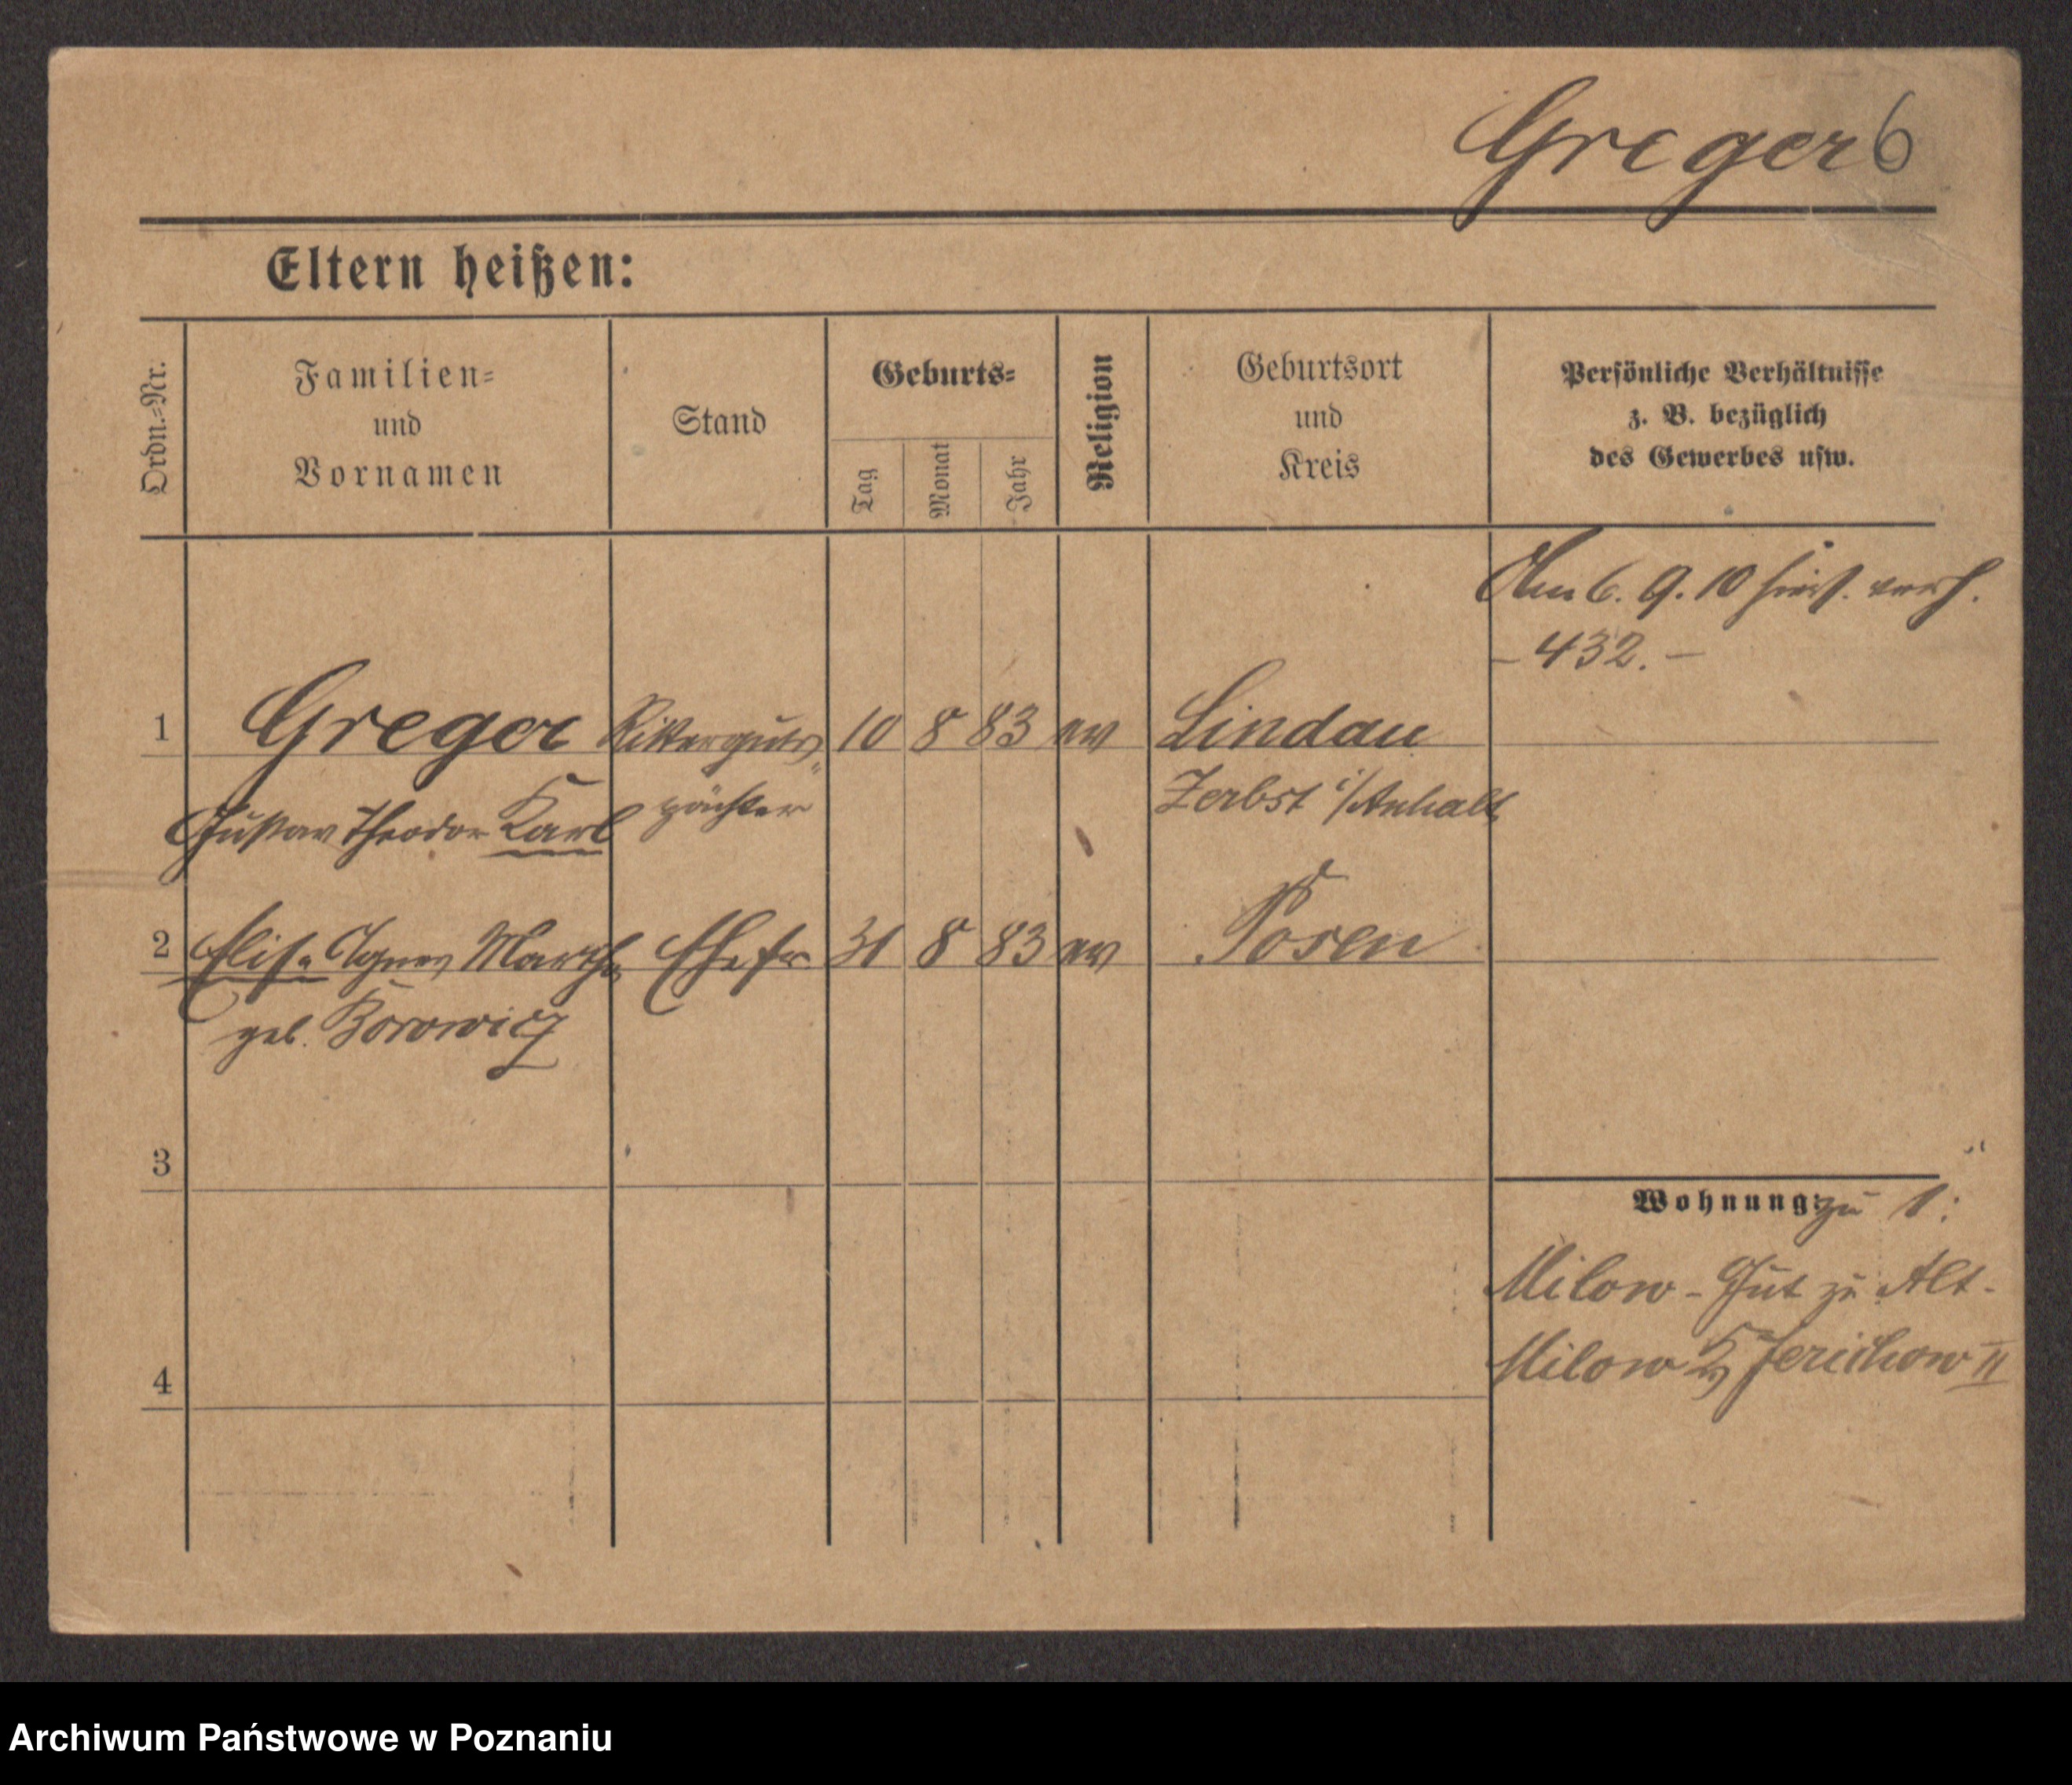 Greger 6
Eltern heißen:
Ordn.=Nr.
Familien=
und
Vornamen
Stand
Geburts=
Tag
Monat
Jahr
Religion
Geburtsort
und
Kreis
Persönliche Verhältnisse
z. B. bezüglich
des Gewerbes usw.
Am 6. 9. 10 hier verh.
– 432. –
1 Greger Ritterguts 10 8 83 ev Lindau
Gustav Theodor Karl pächter Zerbst i/Anhalt
2 Elise Agnes Martha Ehefr 31 8 83 ev Posen
geb. Borowicz
3
Wohnung: zu 1:
Milow - Gut zu Alt-
Milow Jerichow II
4
Archiwum Państwowe w Poznaniu